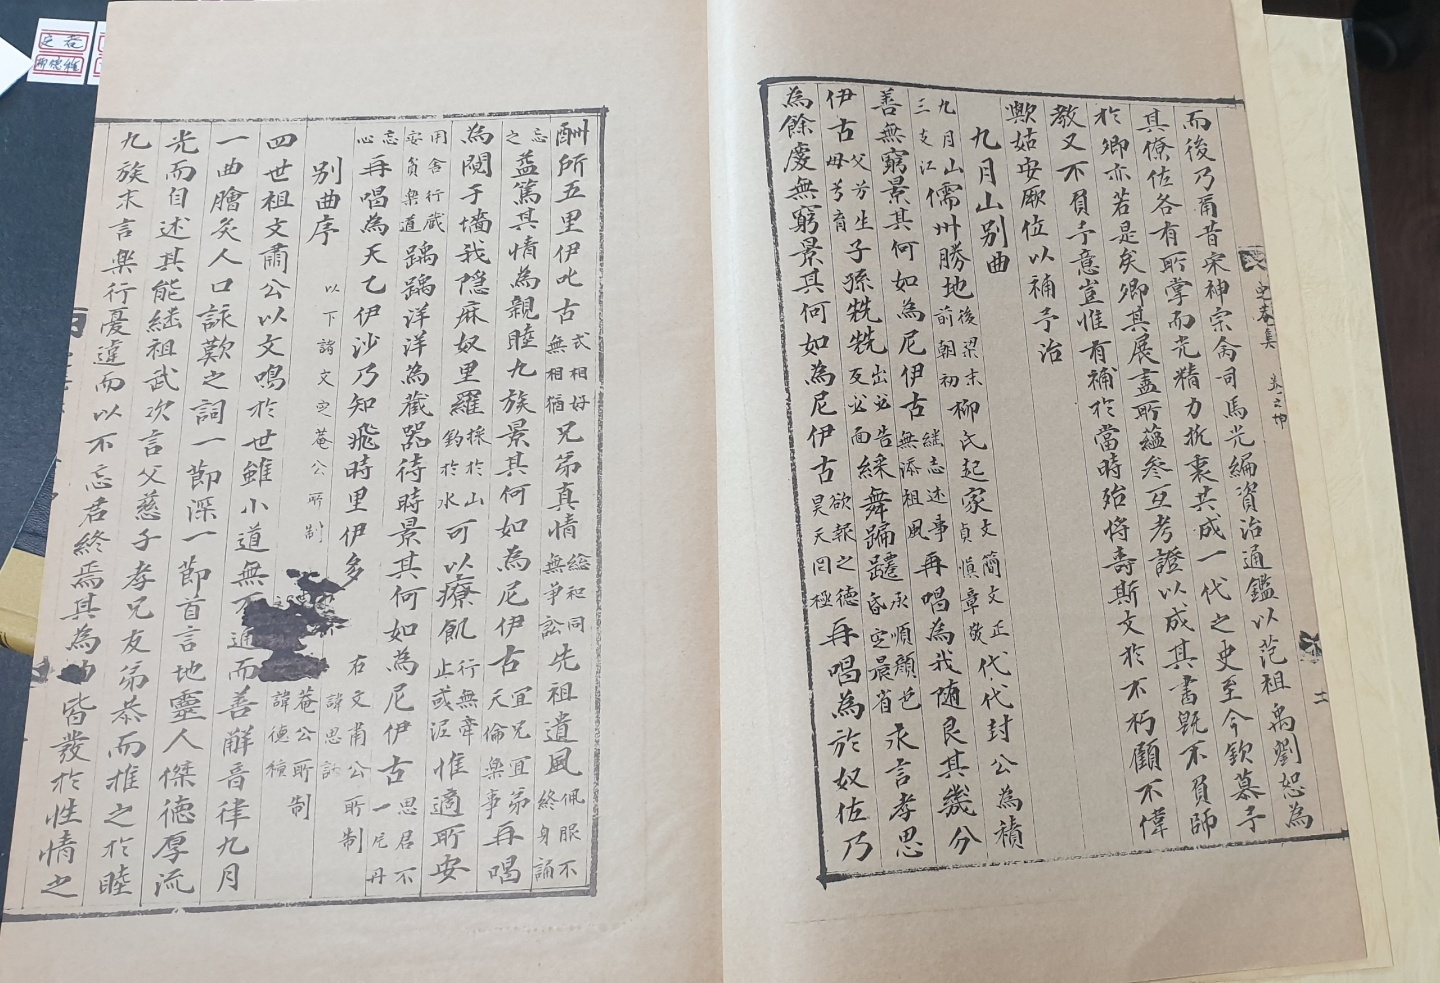 而後乃爾昔宋神宗命司馬光編資治通鑑以范祖禹劉恕為
其僚佐各有所掌而光精力折衷共成一代之史至今欽慕予
於卿亦若是矣卿其展盡所蘊參互考證以成其書旣不負師
教又不負予意豈惟有補於當時殆將壽斯文於不朽顧不偉
歟姑安厥位以補予治
九月山別曲
九月山三支江儒州勝地後梁末前朝初柳氏起家文簡文正貞愼章敬代代封公為積
善無窮景其何如為尼伊古繼志述事無添祖風再唱為我隨良其幾分
伊古父兮生母兮育子孫甡甡出必告反必面綵舞蹁躚承順顔色昏定晨省永言孝思
為餘慶無窮景其何如為尼伊古欲報之德昊天罔極再唱為於奴佐乃
定菴集 卷之坤
十一
酬所五里伊叱古式相好無相猶兄弟真情總和同無爭訟先祖遺風佩服不忘終身誦
之益篤其情為親睦九族景其何如為尼伊古宜兄宜弟天倫樂事再唱
為鬩于墻我隱麻奴里羅採於山釣於水可以療飢行無牽止或泥惟適所安
用舍行藏安貧樂道踽踽洋洋為藏器待時景其何如為尼伊古思君不忘一片丹
心再唱為天乙伊沙乃知飛時里伊多右文肅公所制
別曲序 以下諸文定菴公所制
四世祖文肅公以文鳴於世雖小道無不通而善解音律九月
一曲膾炙人口詠歎之詞一節深一節首言地靈人傑德厚流
光而自述其能繼祖武次言父慈子孝兄友弟恭而推之於睦
九族末言樂行憂違而以不忘君終焉其為曲皆發於性情之
菴公所制 諱德種
定菴
柳德種